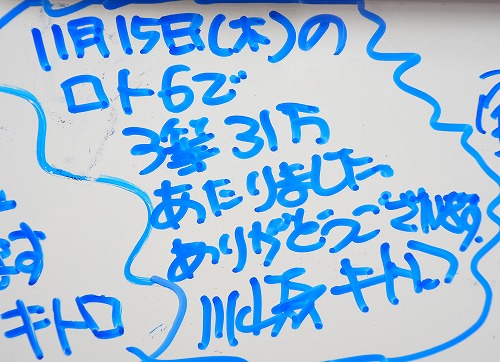 11月15日(木)の
ロト6で
3等31万
あたりました
ありがとうございます
川坂キトロ
ます
キトロ